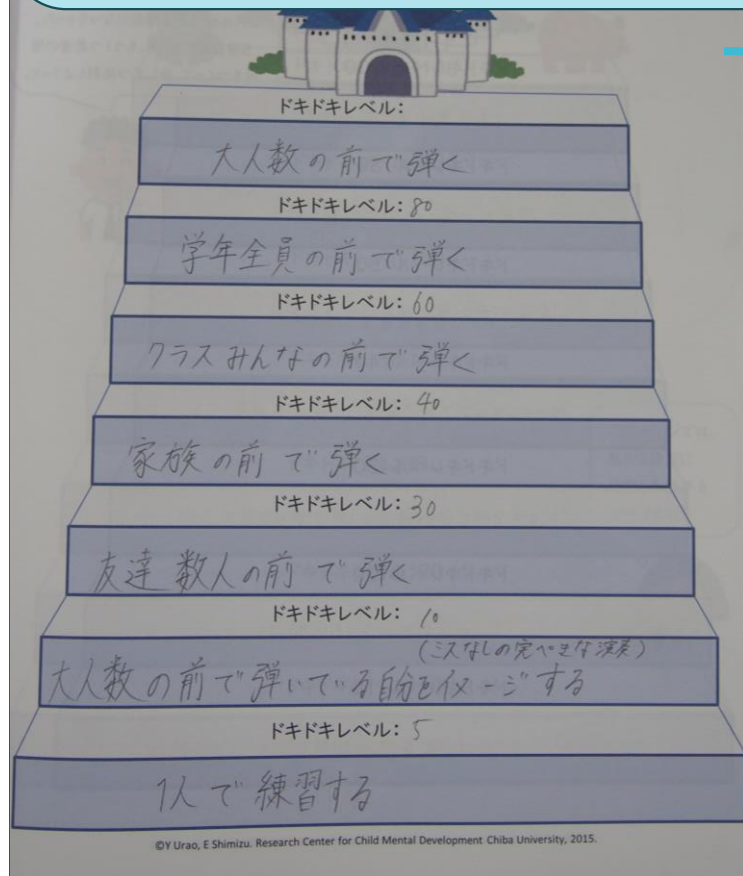 ドキドキレベル:
大人数の前で弾く
ドキドキレベル: 80
学年全員の前で弾く
ドキドキレベル: 60
クラスみんなの前で弾く
ドキドキレベル: 40
家族の前で弾く
ドキドキレベル: 30
友達数人の前で弾く
ドキドキレベル: 10
(ミスなしの完ぺきな演奏)
大人数の前で弾いている自分をイメージする
ドキドキレベル: 5
1人で練習する
©Y Urao, E Shimizu. Research Center for Child Mental Development Chiba University, 2015.